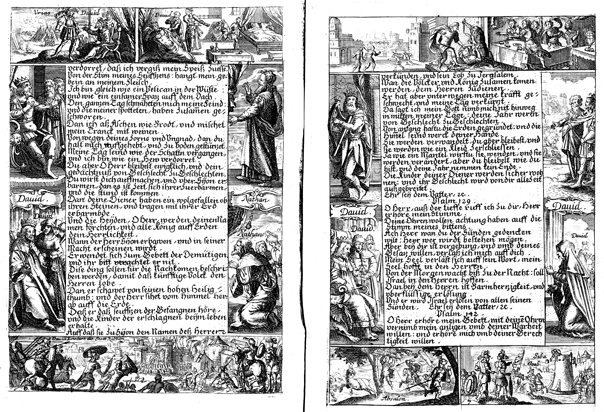 Urias
Dauid
verdorret, daß ich vergiß mein Speiß zuessen
Von der Stim meines Seufftzens: hangt mein gebein
an meinem Fleisch.
Ich bin gleich wie ein Pelican in der Wüste
und wie ein einsamer Spatz auff dem Dach.
Den gantzen Tag schmaheten mich meine Feind
und die meiner spotteten, haben zusamen geschworen.
Dan ich aß Aschen wie Brodt, und mischet
mein Tranck mit weinen.
Von wegen deines Zorns und Ungnad, dan du
hast mich auffgehebt, und zu boden gestürtzt
Meine Tag seind wie der Schatten vergangen,
und ich bin wie ein Hew verdorret.
Du aber O Herr bleibst ewiglich, und dein
gedächtnuß von Geschlecht zu Geschlechten.
Du wirst dich auffmachen, und über Sion erbarmen,
dan es ist Zeit, sich ihrer zuerbarmen,
und die stund ist kommen.
Dan deine Diener haben ein wolgefallen ob
ihren Steinen, und tragen mit ihrer Erd
erbarmbde.
und die Heyden, O Herr, werden deinen Namen
forchten, und alle König auff Erden
dein Herrlichkeit.
Wann der Herr Sion erbawen, und in seiner
Macht erscheinen wurdt.
Er wendet sich zum Gebett der Demütigen,
und ihr bitt verachtet er nit.
Diese ding sollen für die Nachkomen beschriben
werden, damit daß künfftige Volck den
Herren lobe.
Dan er schawet von seinen hohen Heiligthumb:
und der Herr sihet vom himmel herab
auff die Erde.
Daß er daß seufftzen der Gefangnen höre,
und die Kinder der erschlagnen beim leben
erhalte.
Auff daß sie zu Sion den Namen deß Herren
Dauid.
Nathan.
Nathan
verkünden, und sein Lob zu Jerusalem.
Wan die Völcker und König zusamen komen
werden, dem Herren zudienen.
Er hat aber unterwegen meine krafft geschwecht,
und meine Tag verkürtzt.
Da sagt ich mein Gott nimb mich nit hinweg
in mitten meiner Tage, deine Jahr werden
von Geschlecht zu Geschlechten.
Von anfang hastu die Erden gegründet: und die
Himel seind werck deiner Hände.
Sie werden verwandelt, du aber bleibst, und
sie werden wie ein Kleid zerschliessen.
Ja wie ein Mantel wirstu sie wenden, und sie
werden verändert, aber du bleibst, wie du
bist, und deine Jahr nemmen kein Ende.
Die Kinder deiner Diener werden sicher wohnen,
und ihr Geschlecht wird von dir alle zeit
außgebrait.
Ehr sei dem Vatter, ec.
Psalm. 129.
O Herr, auß der tieffe ruff ich zu dir, Herr
erhöre mein stimme.
Deine Ohren wollen achtung haben auff die
Stimm meines bitten.
So Herr woan du der Sünden gedencken
wilt: Herr wer wird bestehen mögen.
Aber bey dir ist vergebung, und umb deines
Gesatz willen, verlaß ich mich auff dich.
Mein Seel verlast sich auff sein Wort, mein
Seel hofft in den Herren.
Von der Morgen wacht biß zu der Nacht: soll
Israel in den Herren hoffen.
Dan bey dem Herren ist Barmhertzigkeit, und
überflüssige erlösung.
Und er wird Israel erlösen von allen seinen
Sünden. Ehr sei dem Vatter, ec.
Psalm. 142.
O Herr erhöre mein Gebett, mit deine Ohren
vernimb mein anligen umb deiner Warheit
willen: und erhöre mich umb deiner Gerechtigkeit
willen
Dauid.
Dauid.
Dauid.
Absalon.
Seba